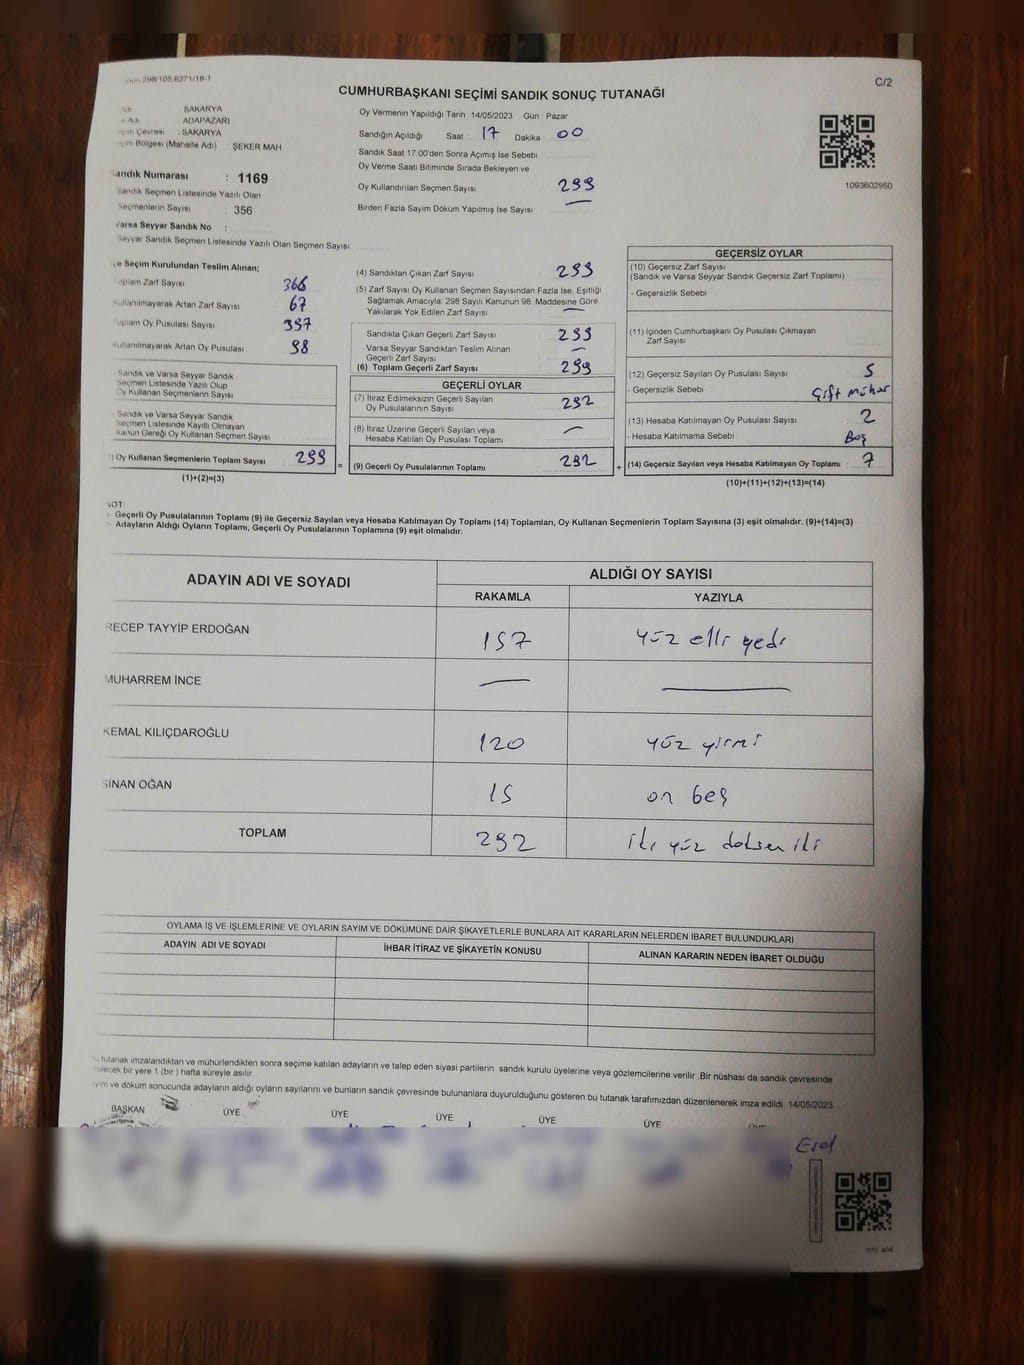 C/2
CUMHURBAŞKANI SEÇİMİ SANDIK SONUÇ TUTANAĞI
SAKARYA
ADAPAZARI
Çevresi : SAKARYA
Bölgesi (Mahalle Adı) ŞEKER MAH
Sandık Numarası : 1169
Sandık Seçmen Listesinde Yazılı Olan
Seçmenlerin Sayısı : 356
Varsa Seyyar Sandık No :
Seyyar Sandık Seçmen Listesinde Yazılı Olan Seçmen Sayısı
Oy Vermenin Yapıldığı Tarih 14/05/2023 Gün Pazar
Sandığın Açıldığı Saat 17 Dakika 00
Sandık Saat 17:00'den Sonra Açılmış İse Sebebi
Oy Verme Saati Bitiminde Sırada Bekleyen ve
Oy Kullandırılan Seçmen Sayısı 299
Birden Fazla Sayım Döküm Yapılmış İse Sayısı —
1093602950
İlçe Seçim Kurulundan Teslim Alınan;
Toplam Zarf Sayısı 366
Kullanılmayarak Artan Zarf Sayısı 67
Toplam Oy Pusulası Sayısı 397
Kullanılmayarak Artan Oy Pusulası 98
Sandık ve Varsa Seyyar Sandık
Seçmen Listesinde Yazılı Olup
Oy Kullanan Seçmenlerin Sayısı
Sandık ve Varsa Seyyar Sandık
Seçmen Listesinde Kayıtlı Olmayan
Kanun Gereği Oy Kullanan Seçmen Sayısı
Oy Kullanan Seçmenlerin Toplam Sayısı 299
(1)+(2)=(3)
=
(4) Sandıktan Çıkan Zarf Sayısı 299
(5) Zarf Sayısı Oy Kullanan Seçmen Sayısından Fazla İse, Eşitliği
Sağlamak Amacıyla; 298 Sayılı Kanunun 98. Maddesine Göre
Yakılarak Yok Edilen Zarf Sayısı —
Sandıkta Çıkan Geçerli Zarf Sayısı 299
Varsa Seyyar Sandıktan Teslim Alınan
Geçerli Zarf Sayısı —
(6) Toplam Geçerli Zarf Sayısı 299
GEÇERLİ OYLAR
(7) İtiraz Edilmeksizin Geçerli Sayılan
Oy Pusulalarının Sayısı 292
(8) İtiraz Üzerine Geçerli Sayılan veya
Hesaba Katılan Oy Pusulası Toplamı —
(9) Geçerli Oy Pusulalarının Toplamı 292
+
GEÇERSİZ OYLAR
(10) Geçersiz Zarf Sayısı
(Sandık ve Varsa Seyyar Sandık Geçersiz Zarf Toplamı)
- Geçersizlik Sebebi
(11) İçinden Cumhurbaşkanı Oy Pusulası Çıkmayan
Zarf Sayısı
(12) Geçersiz Sayılan Oy Pusulası Sayısı 5
- Geçersizlik Sebebi Çift Mühür
(13) Hesaba Katılmayan Oy Pusulası Sayısı 2
- Hesaba Katılmama Sebebi Boş
(14) Geçersiz Sayılan veya Hesaba Katılmayan Oy Toplamı 7
(10)+(11)+(12)+(13)=(14)
NOT:
Geçerli Oy Pusulalarının Toplamı (9) ile Geçersiz Sayılan veya Hesaba Katılmayan Oy Toplamı (14) Toplamları, Oy Kullanan Seçmenlerin Toplam Sayısına (3) eşit olmalıdır. (9)+(14)=(3)
Adayların Aldığı Oyların Toplamı, Geçerli Oy Pusulalarının Toplamına (9) eşit olmalıdır.
ADAYIN ADI VE SOYADI ALDIĞI OY SAYISI
RAKAMLA YAZIYLA
RECEP TAYYİP ERDOĞAN 157 yüz elli yedi
MUHARREM İNCE — —
KEMAL KILIÇDAROĞLU 120 yüz yirmi
SİNAN OĞAN 15 on beş
TOPLAM 292 iki yüz doksan iki
OYLAMA İŞ VE İŞLEMLERİNE VE OYLARIN SAYIM VE DÖKÜMÜNE DAİR ŞİKAYETLERLE BUNLARA AİT KARARLARIN NELERDEN İBARET BULUNDUKLARI
ADAYIN ADI VE SOYADI İHBAR İTİRAZ VE ŞİKAYETİN KONUSU ALINAN KARARIN NEDEN İBARET OLDUĞU
tutanak imzalandıktan ve mühürlendikten sonra seçime katılan adayların ve talep eden siyasi partilerin sandık kurulu üyelerine veya gözlemcilerine verilir. Bir nüshası da sandık çevresinde
bir yere 1 (bir) hafta süreyle asılır.
ve döküm sonucunda adayların aldığı oyların sayılarını ve bunların sandık çevresinde bulunanlara duyurulduğunu gösteren bu tutanak tarafımızdan düzenlenerek imza edildi. 14/05/2023
BAŞKAN ÜYE ÜYE ÜYE ÜYE ÜYE